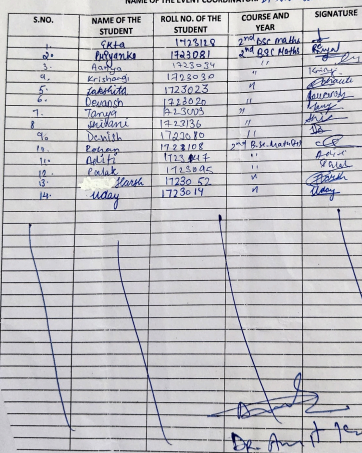 NAME OF THE EVENT COORDINATOR:
S.NO. NAME OF THE STUDENT ROLL NO. OF THE STUDENT COURSE AND YEAR SIGNATURE
1. Ekta 1723128 2nd BSC Maths
2. Priyanka 1723081 2nd BSC Maths Priya
3. Aanya 1723034 "
4. Krishangi 1723030 "
5. Lakshita 1723023 "
6. Devansh 1723020 "
7. Tanya 1723003 "
8. Shivani 1723136 "
9. Devish 1723080 "
10. Rohan 1723108 2nd B.Sc. Maths(H)
11. Aditi 1723147 " Aditi
12. Palak 1723095 " Palak
13. Harsh 1723052 " Harsh
14. Uday 1723014 " Uday
Dr.